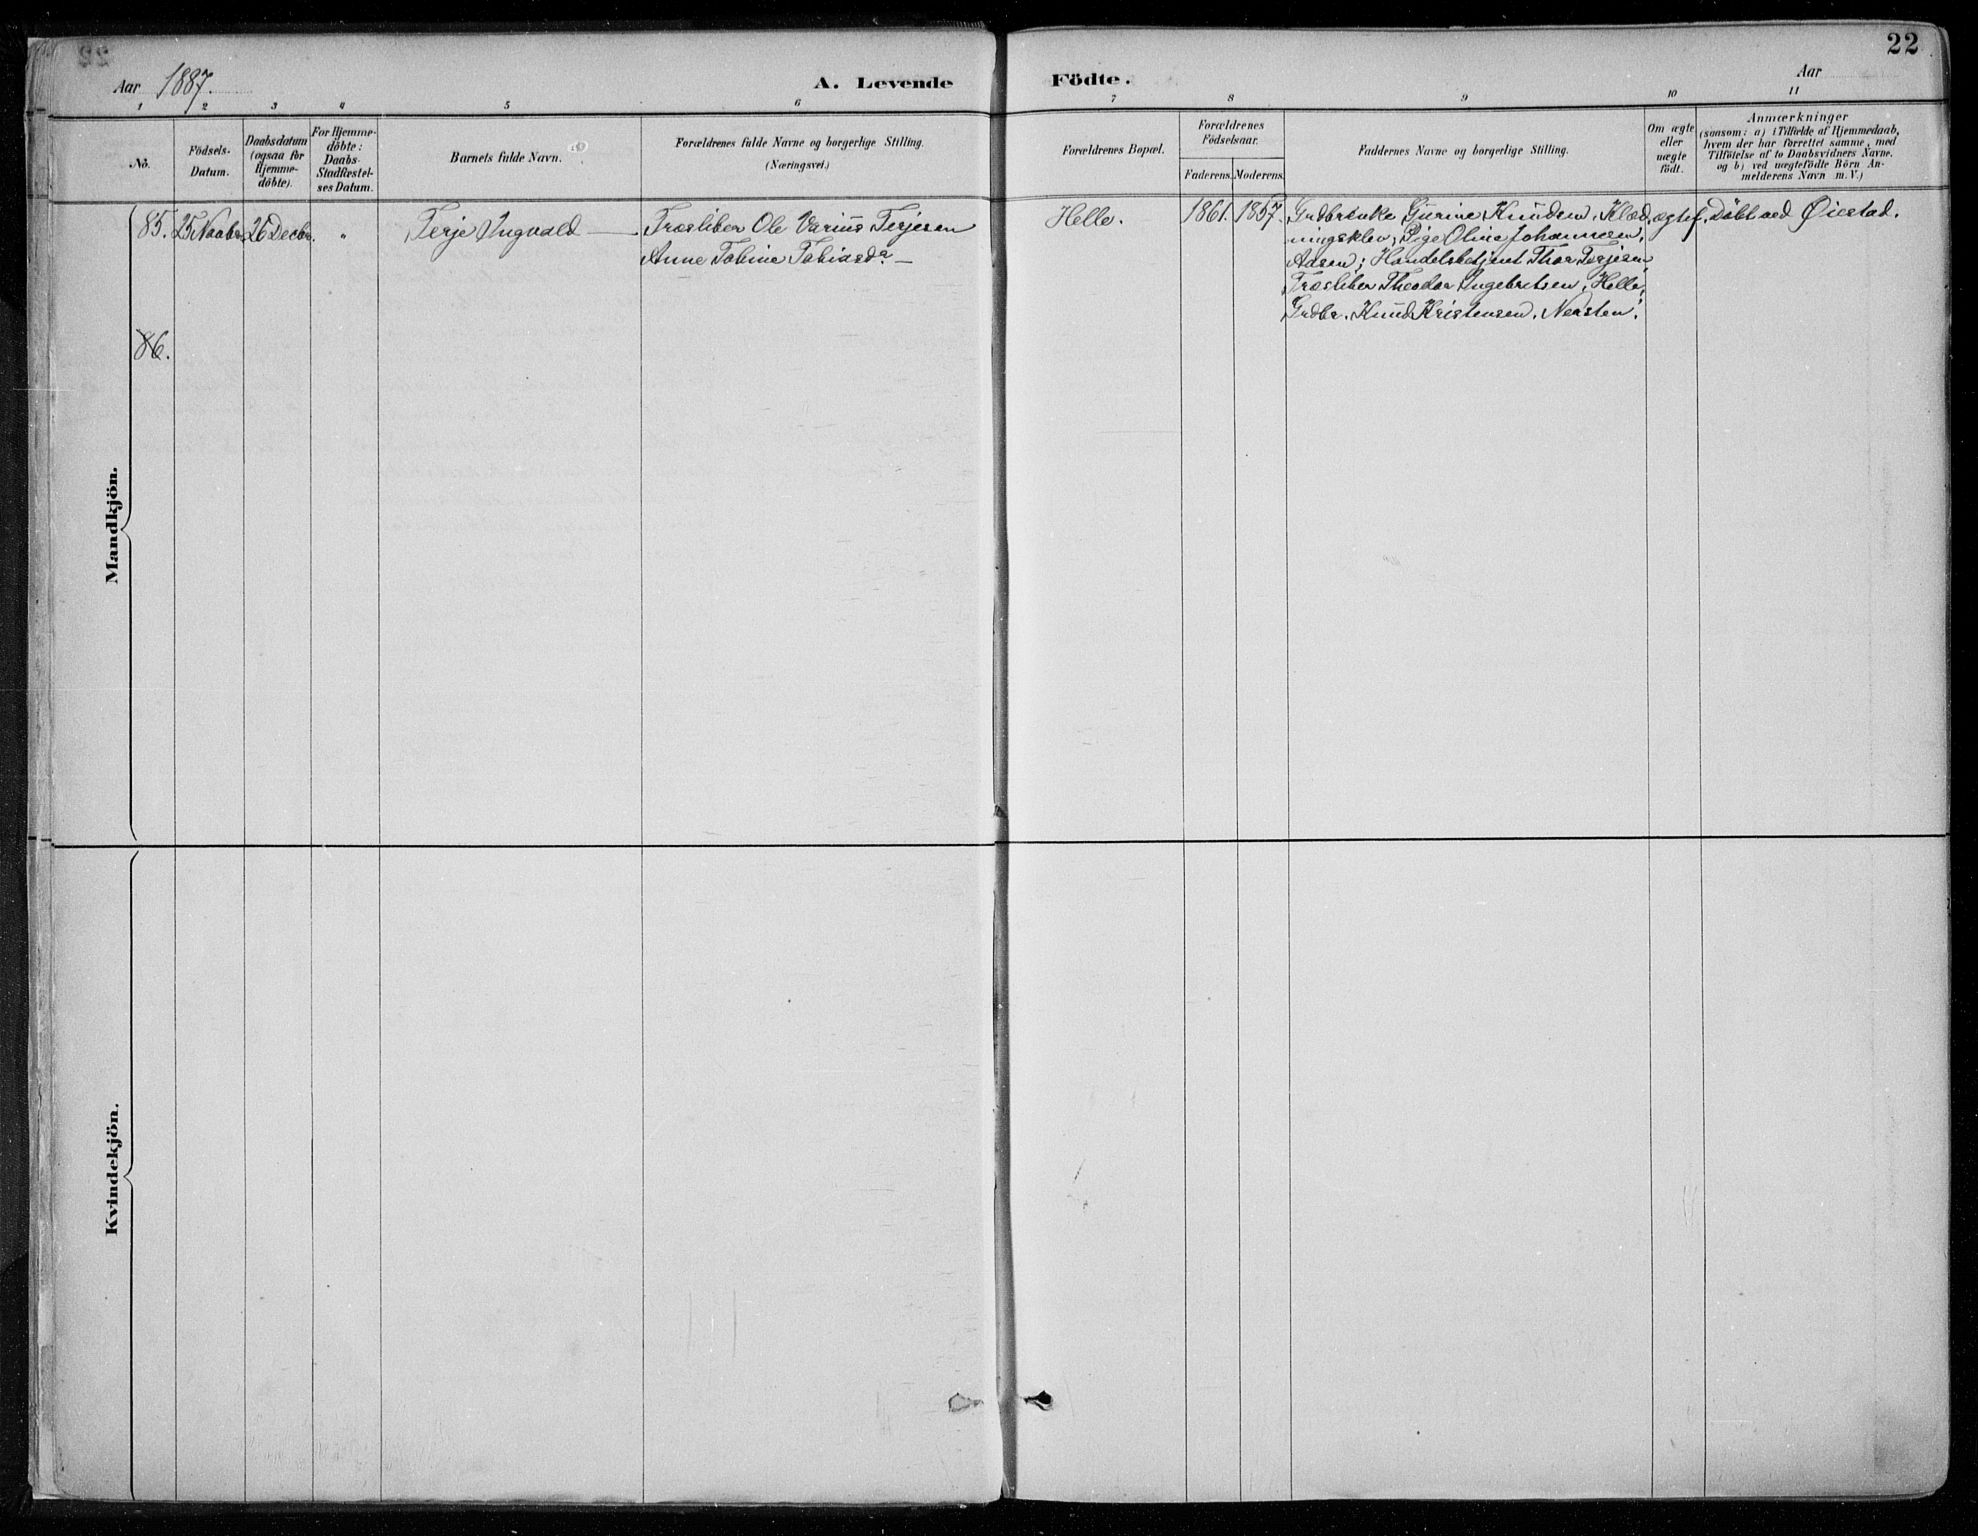 22
Aar 1887.
A. Levende Födte.
Aar
1 2 3 4 5 6 7 8 9 10 11
No.
Födsels-
Datum.
Daabsdatum
(ogsaa for
Hjemme-
döbte).
For Hjemme-
döbte:
Daabs-
Stadfæstel-
ses Datum.
Barnets fulde Navn.
Forældrenes fulde Navne og borgerlige Stilling.
(Næringsvei.)
Forældrenes Bopæl.
Forældrenes
Födselsaar.
Faderens. Moderens.
Faddernes Navne og borgerlige Stilling.
Om ægte
eller
uægte
födt.
Anmærkninger
(saasom: a) i Tilfælde af Hjemmedaab,
hvem der har forrettet samme, med
Tilföielse af to Daabsvidners Navne,
og b) ved uægtefödte Börn An-
melderens Navn m. V.)
Mandkjön.
85. 25 Novbr. 26 Decbr. " Terje Ingvald — Træsliber Ole Varius Terjesen
Anne Tobine Tobiasdr —
Helle. 1861. 1857. Grdbrenke Gurine Knudsen, Klæd ægtef. Döbt ved Øiestad.
ningsklev; Pige Oline Johannesen,
Aasen; Handelsbetjent Thor Terjesen,
Træsliber Theodor Ingebretsen, Helle,
Grdbr. Knud Kristensen, Nersten.
86.
Kvindekjön.